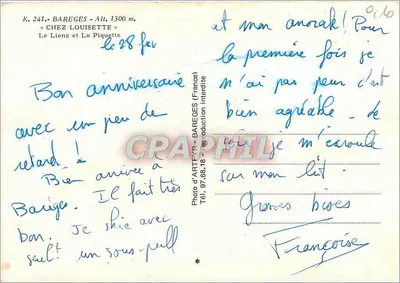 K. 241.- BAREGES - Alt. 1300 m.
« CHEZ LOUISETTE »
Le Lienz et La Piquette
le 28 fev
Bon anniversaire
avec un peu de
retard !
Bien arrivée à
Barèges. Il fait très
bon. Je skie avec
seult un sous-pull
Photo d'ART - BAREGES (France)
Tél. 97.68.16 - Reproduction interdite
*
CPAPHIL
0,10
et mon anorak! Pour
la première fois je
n'ai pas peur c'est
bien agréable - le
soir je m'écroule
sur mon lit.
Grosses bises
Françoise